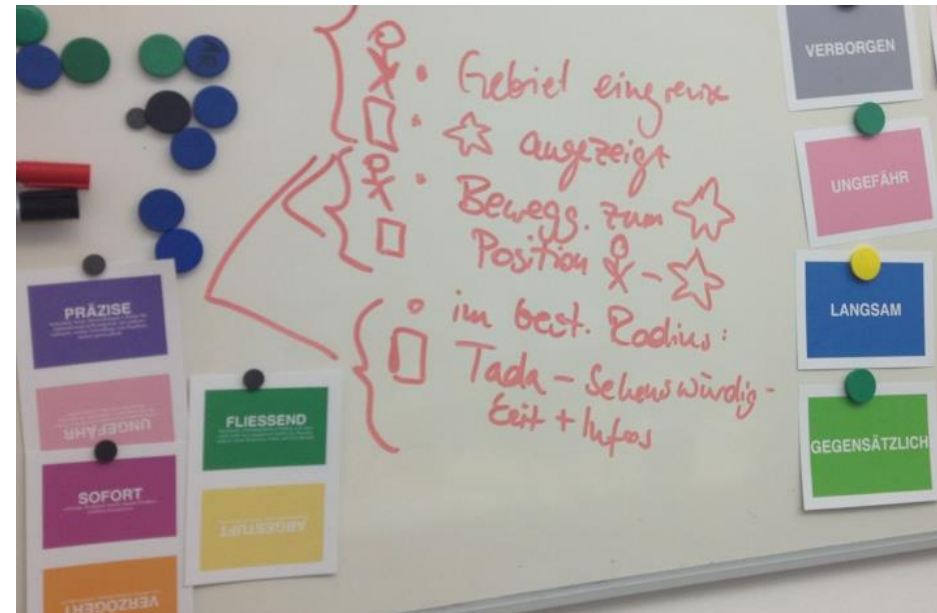 Gebiet eingrenzen
angezeigt
Bewegg. zum
Position
im best. Radius:
Tada – Sehenswürdig-
keit + Infos
VERBORGEN
UNGEFÄHR
LANGSAM
GEGENSÄTZLICH
PRÄZISE
UNGEFÄHR
SOFORT
VERZÖGERT
FLIESSEND
ABGESTUFT